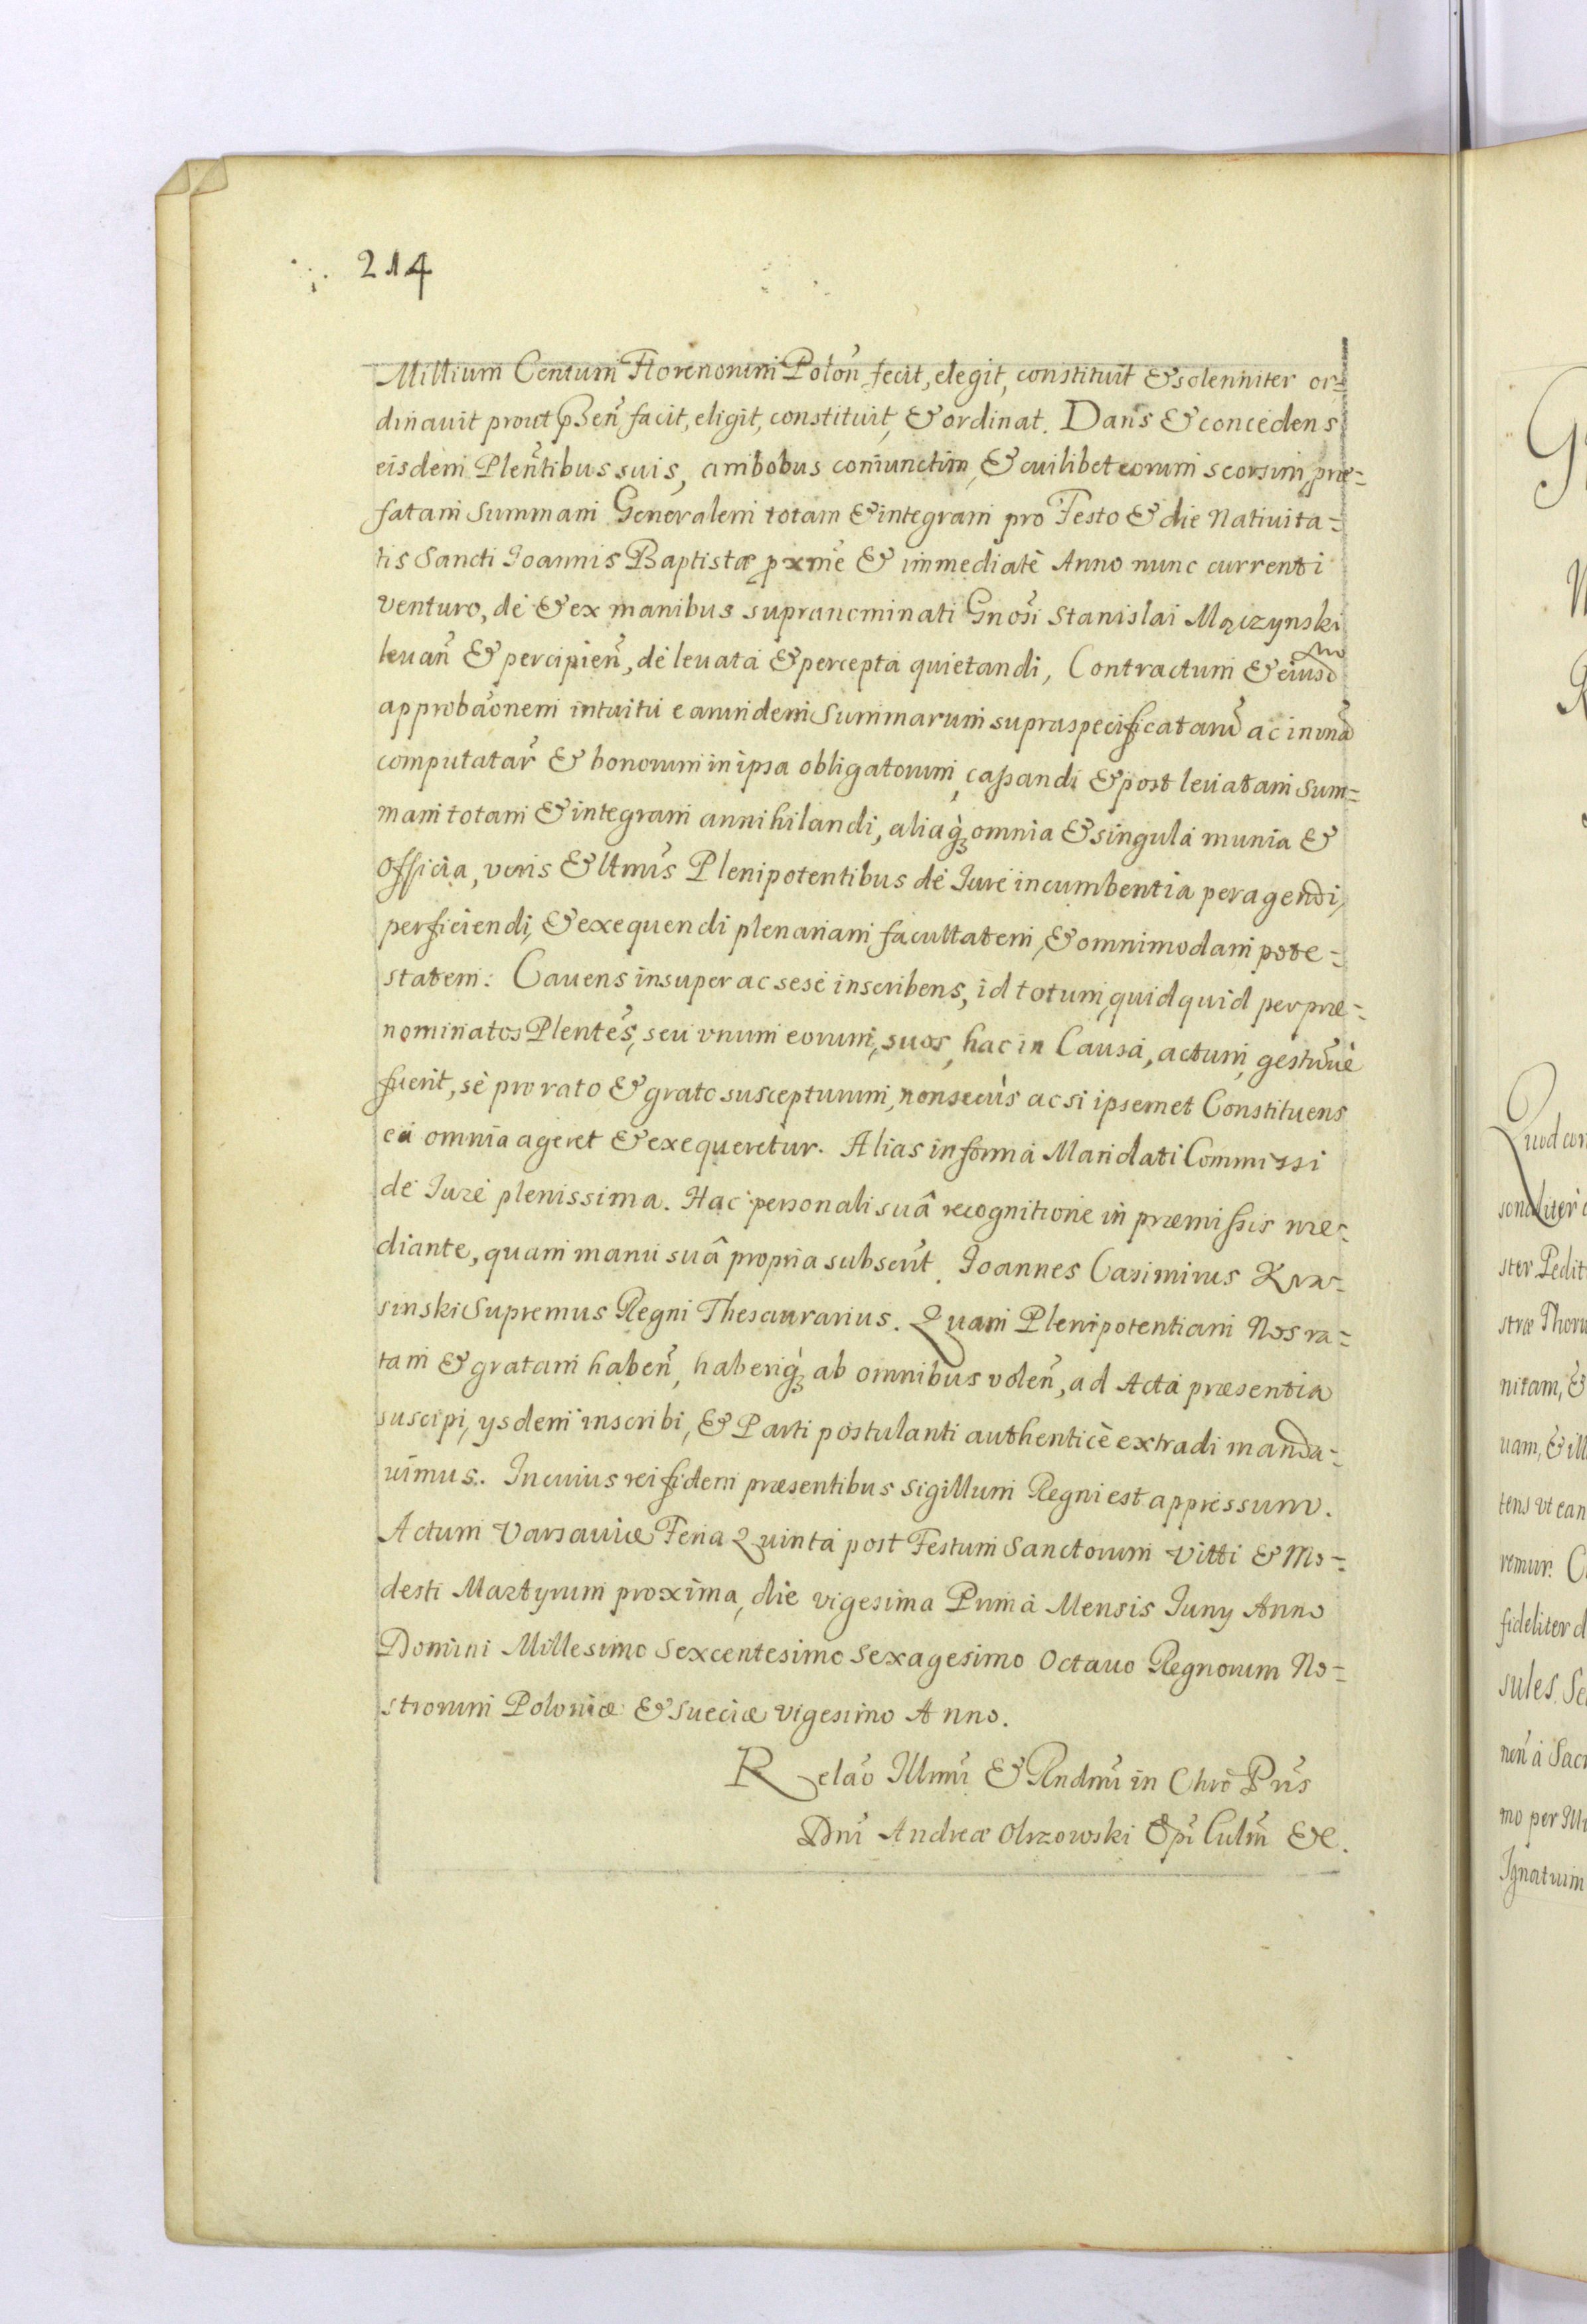 214
Millium Centum Florenorum Polon̄ fecit, elegit, constituit & solenniter or=
dinauit prout p̄sen̄ facit, eligit, constituit, & ordinat. Dans & concedens
eisdem Plen̄tibus suis, ambobus coniunctim, & cuilibet eorum seorsim, præ=
fatam Summam Generalem totam & integram pro Festo & die Natiuita=
tis Sancti Ioannis Baptistæ pxm̄e & immediatè Anno nunc currenti
venturo, de & ex manibus supranominati Gnōsi Stanislai Mączynski
leuan̄ & percipien̄, de leuata & percepta quietandi, Contractum & eiusd
approbāonem intuitu earumdem Summarum supraspecificatarū ac in vnā
computatar̄ & bonorum in ipsa obligatorum, cassandi & post leuatam Sum=
mam totam & integram annihilandi, aliaq̀ȝ omnia & singula munia &
Officia, veris & ltmīs Plenipotentibus de Iure incumbentia peragendi,
perficiendi, & exequendi plenariam facultatem, & omnimodam pote=
statem: Cauens insuper ac sese inscribens, id totum, quidquid per præ=
nominatos Plentēs, seu vnum eorum, suos, hac in Causa, actum, gestūuè
fuerit, se pro rato & grato suscepturum, non secùs ac si ipsemet Constituens
ea omnia ageret & exequeretur. Alias in forma Mandati Commissi
de Iure plenissima. Hac personali suâ recognitione in præmissis me=
diante, quam manu suâ propria subscrīt. Joannes Casimirus Kra=
sinski Supremus Regni Thesaurarius. Quam Plenipotentiam Nos ra=
tam & gratam haben̄, haberiq̀ȝ ab omnibus volen̄, ad Acta præsentia
suscipi, ysdem inscribi, & Parti postulanti authenticè extradi manda=
uimus. In cuius rei fidem præsentibus Sigillum Regni est appressum.
Actum Varsauiæ Feria Quinta post Festum Sanctorum Vitti & Mo=
desti Martyrum proxima, die vigesima Prima Mensis Iuny Anno
Domini Millesimo Sexcentesimo Sexagesimo Octauo Regnorum No=
strorum Poloniæ & Sueciæ vigesimo Anno.
Relāo Illmī & Rndmī in Chrō Pris
Dnī Andreæ Olszowski Epī Culm̄ &c.